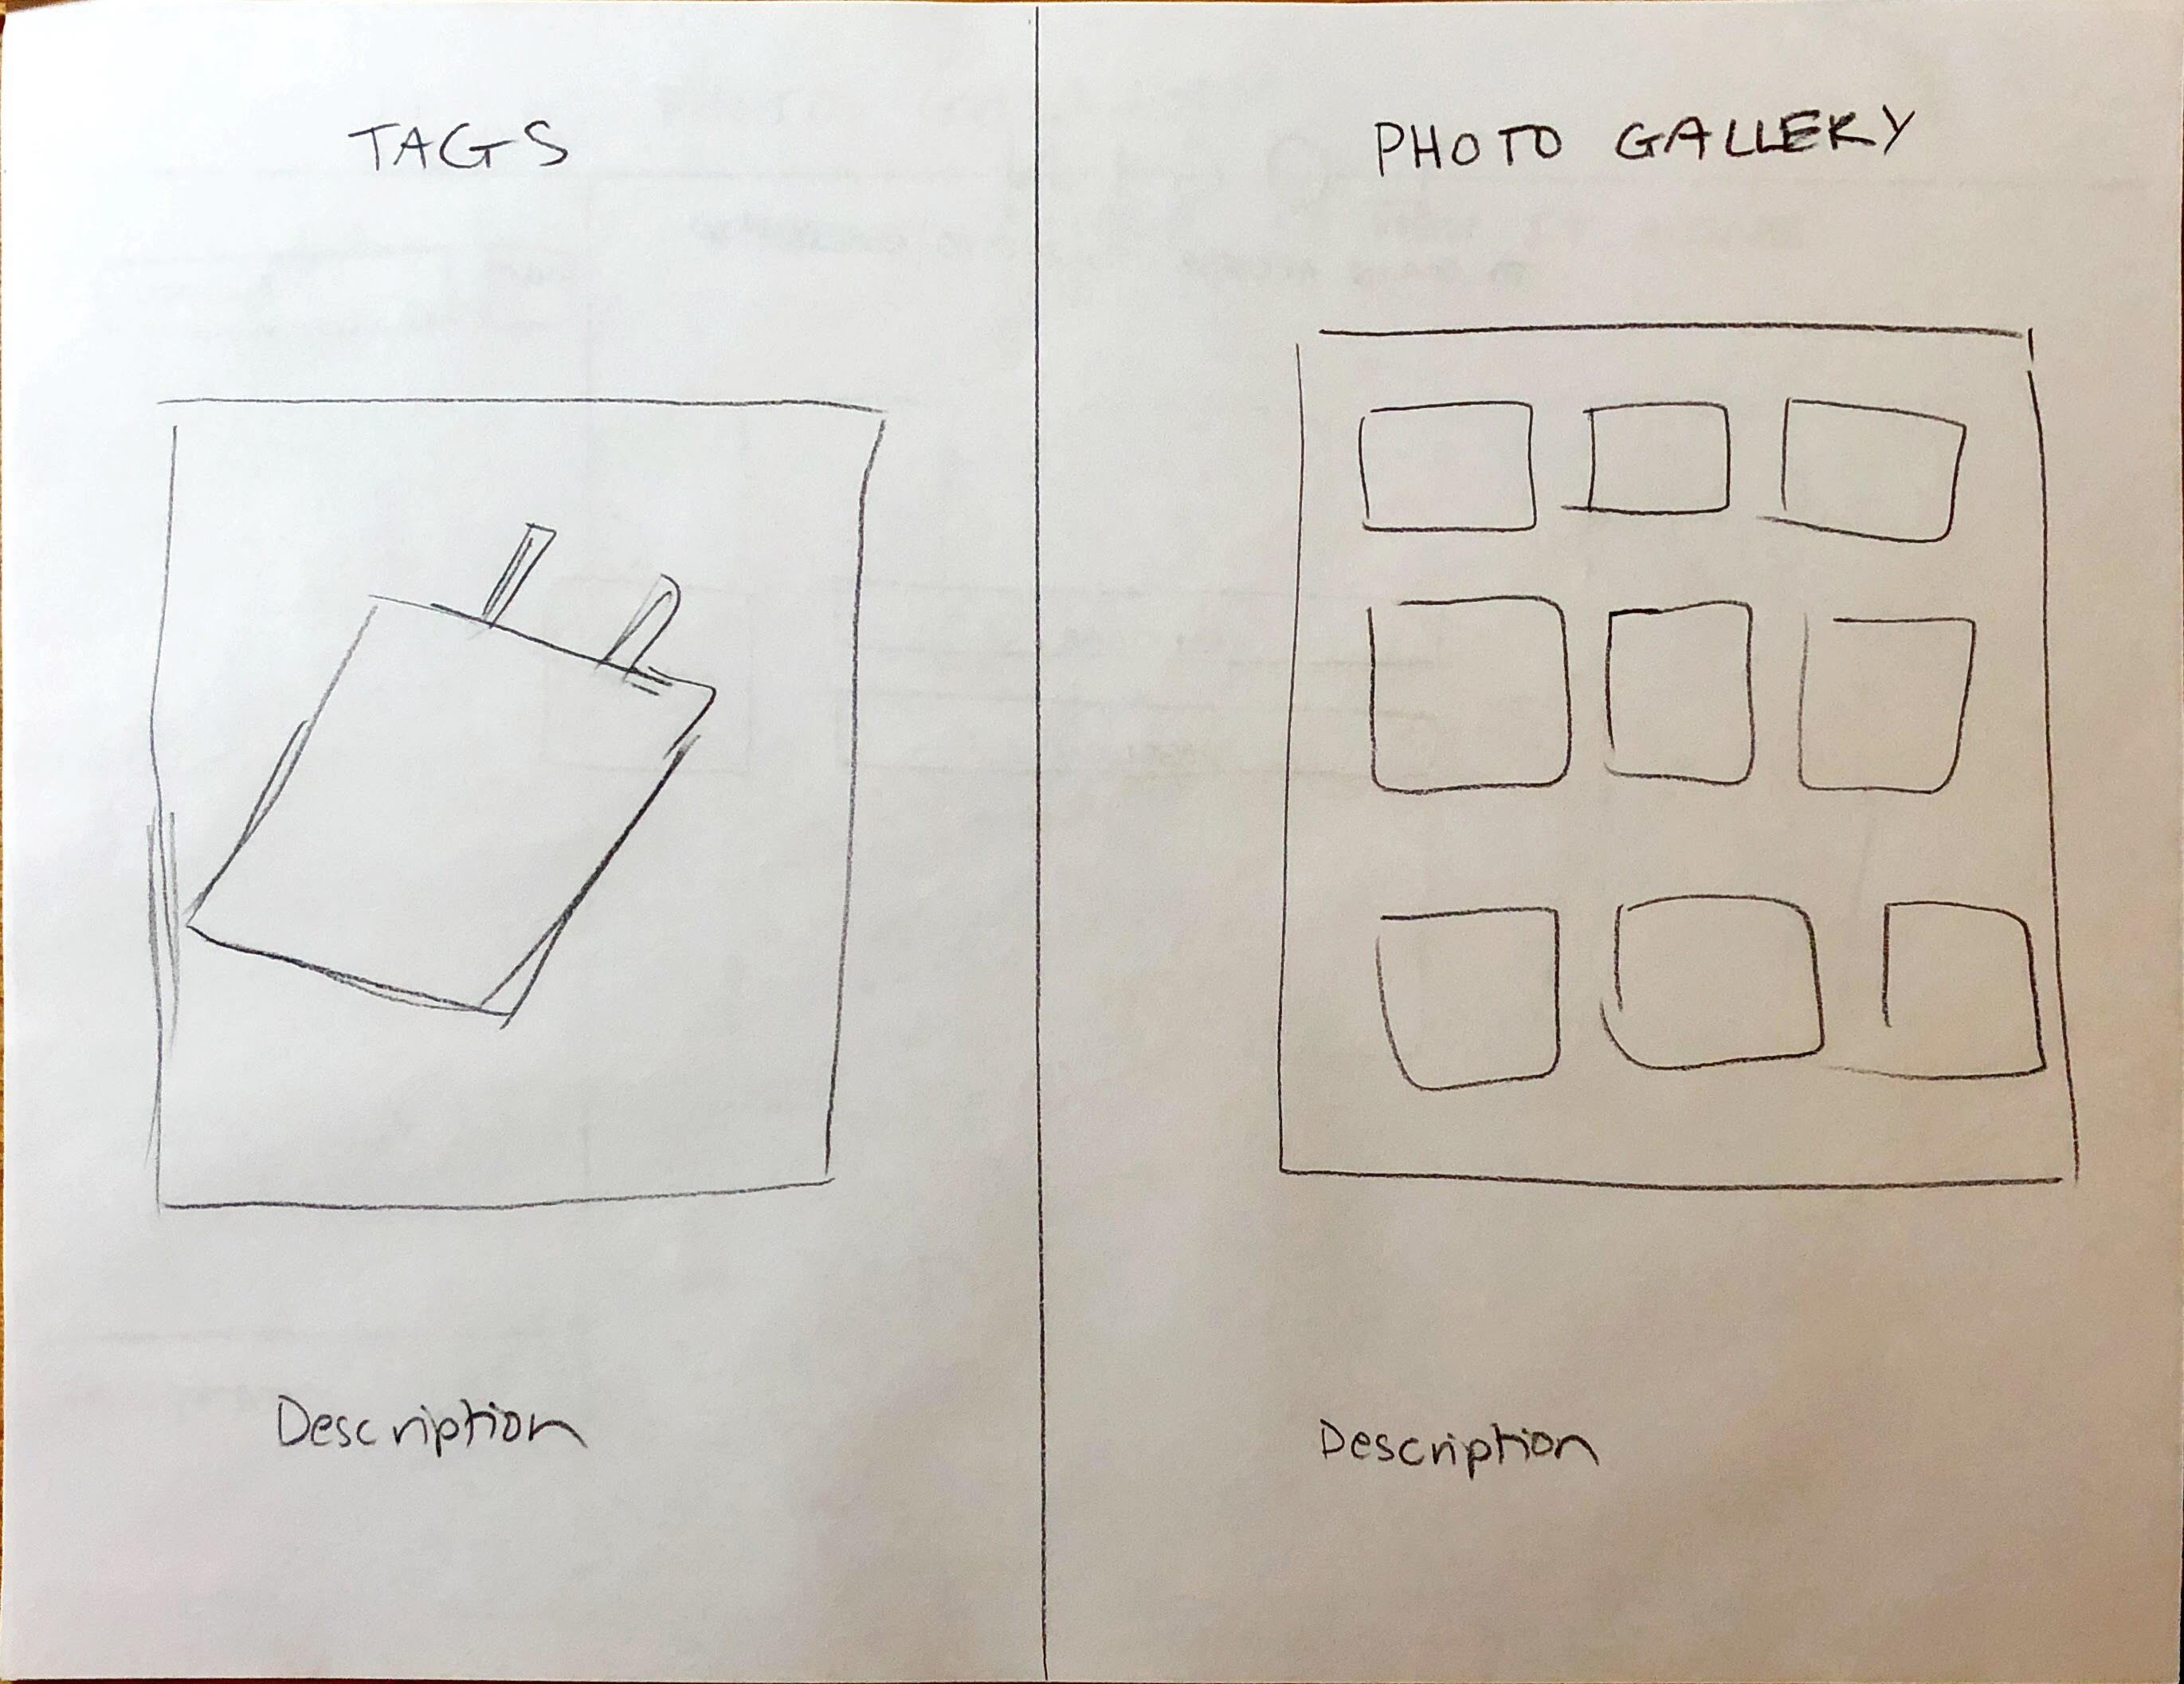 TAGS
Description
PHOTO GALLERY
Description